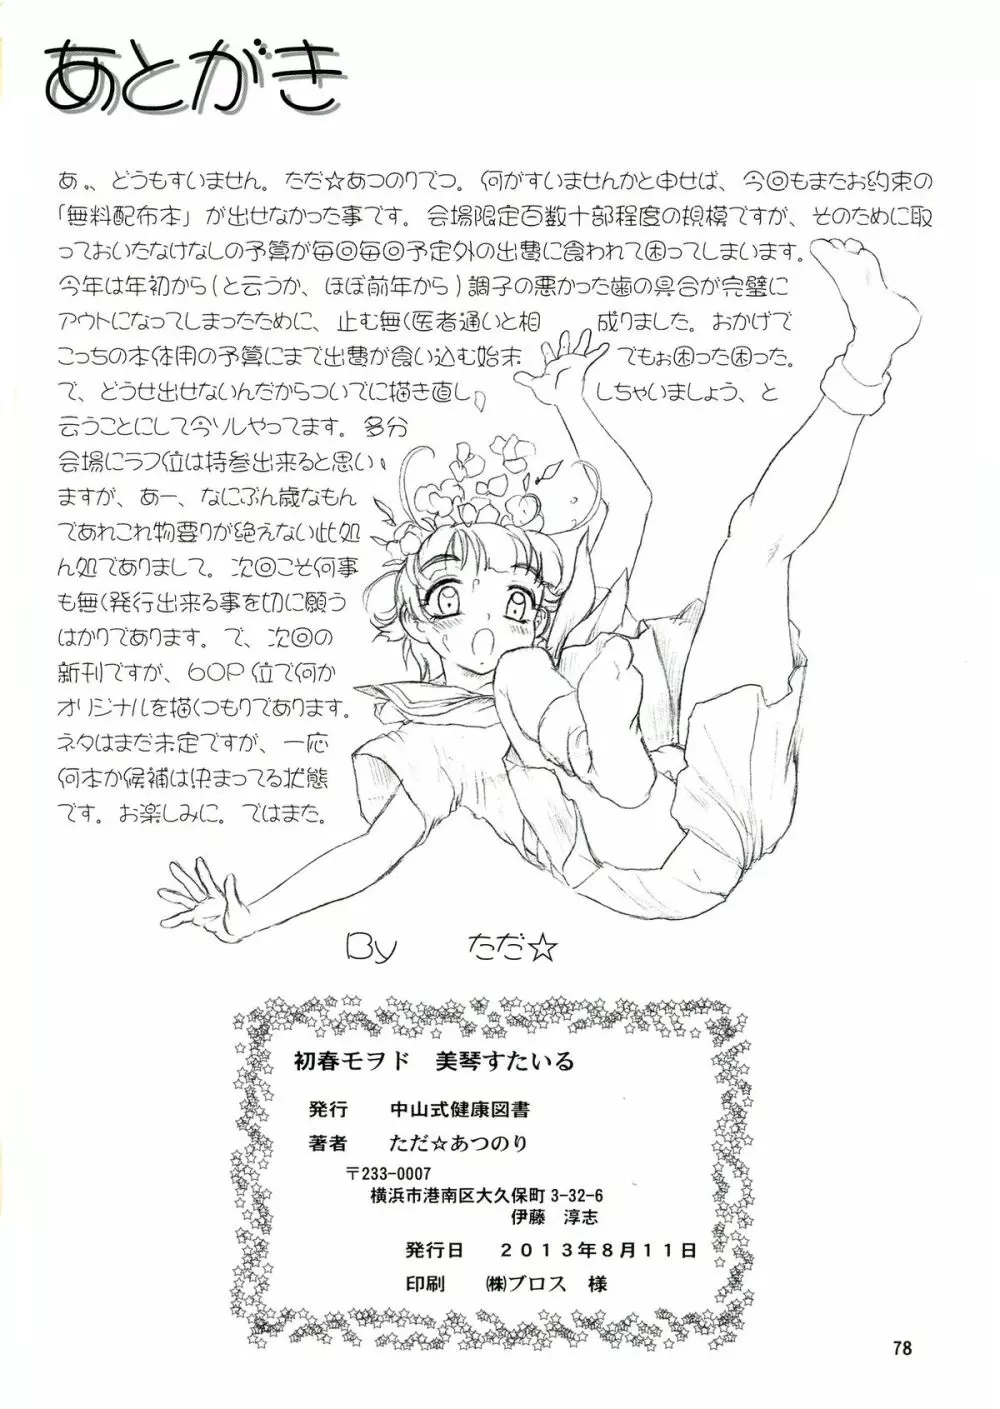 あとがき
あ。、どうもすいません。ただ☆あつのりでつ。何がすいませんかと申せば、今回もまたお約束の
「無料配布本」が出せなかった事です。会場限定百数十部程度の規模ですが、そのために取
っておいたなけなしの予算が毎回毎回予定外の出費に食われて困ってしまいます。
今年は年初から(と云うか、ほぼ前年から)調子の悪かった歯の具合が完璧に
アウトになってしまったために、止む無く医者通いと相成りました。おかげで
こっちの本体用の予算にまで出費が食い込む始末でもぉ困った困った。
で、どうせ出せないんだからついでに描き直ししちゃいましょう、と
云うことにして今ソレやってます。多分
会場にラフ位は持参出来ると思い
ますが、あー、なにぶん歳なもん
であれこれ物要りが絶えない此処
ん処でありまして。次回こそ何事
も無く発行出来る事を切に願う
ばかりであります。で、次回の
新刊ですが、60P位で何か
オリジナルを描くつもりであります。
ネタはまだ未定ですが、一応
何本か候補は決まってる状態
です。お楽しみに。ではまた。
By ただ☆
初春モヲド 美琴すたいる
発行 中山式健康図書
著者 ただ☆あつのり
〒233-0007
横浜市港南区大久保町3-32-6
伊藤 淳志
発行日 2013年8月11日
印刷 ㈱ブロス 様
78